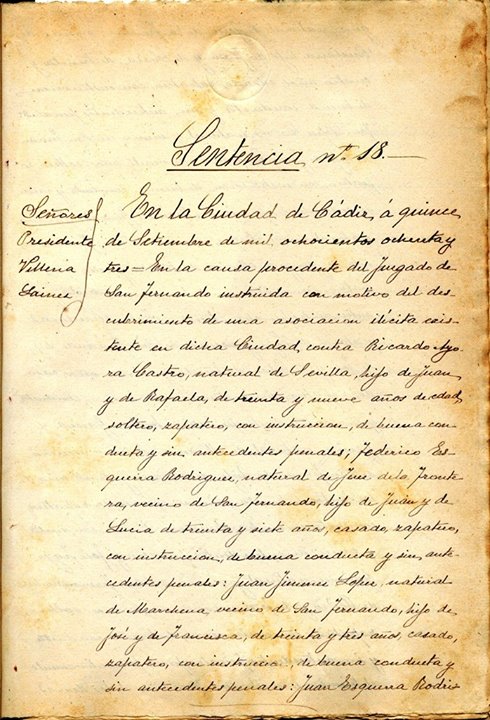 Sentencia nº 18.—
Señores
Presidente
Villena
Lainez
En la Ciudad de Cádiz, á quince
de Setiembre de mil, ochocientos ochenta y
tres = En la causa procedente del Juzgado de
San Fernando instruida con motivo del des-
cubrimiento de una asociacion ilícita exis-
tente en dicha Ciudad, contra Ricardo Ayo
ra Castro, natural de Sevilla, hijo de Juan
y de Rafaela, de treinta y nueve años de edad,
soltero, zapatero, con instruccion, de buena con-
ducta y sin antecedentes penales; Federico Es-
querra Rodriguez, natural de Jerez de la Fronte
ra, vecino de San Fernando, hijo de Juan y de
Lucia de treinta y siete años, casado, zapatero,
con instruccion, de buena conducta y sin ante-
cedentes penales: Juan Jimenez Lopez, natural
de Marchena vecino de San Fernando, hijo de
José y de Francisca, de treinta y tres años, casado,
zapatero, con instrucció, de buena conducta y
sin antecedentes penales: Juan Esquerra Rodri